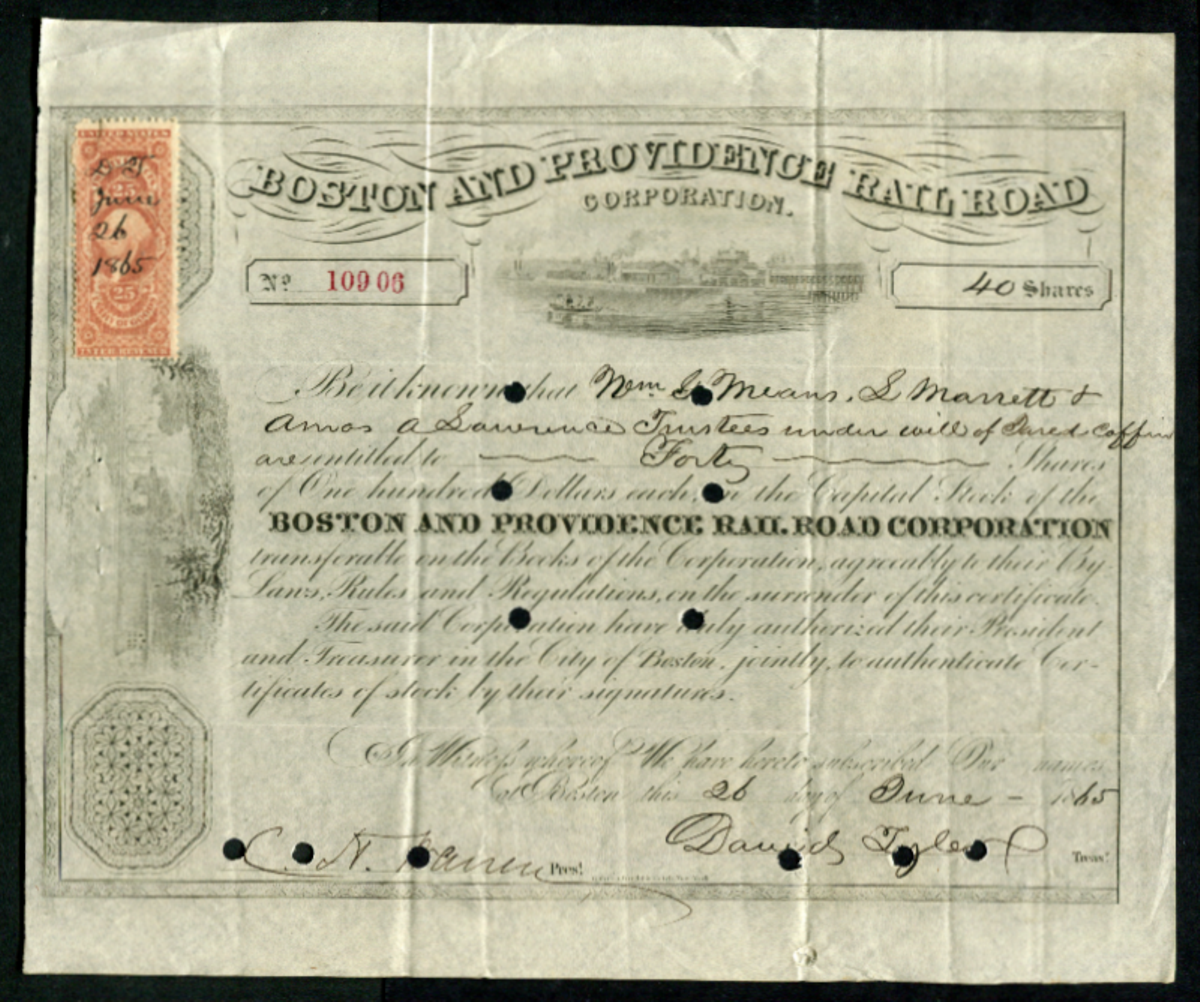 BOSTON AND PROVIDENCE RAIL ROAD
CORPORATION.
UNITED STATES
25
D T
June
26
1865
25
INTER. REVENUE
No 10906
40 Shares
Be it known that Wm G Means, S Marrett &
Amos A Lawrence Trustees under will of Jared Coffin
are entitled to Forty Shares
of One hundred Dollars each, in the Capital Stock of the
BOSTON AND PROVIDENCE RAIL ROAD CORPORATION
transferable on the Books of the Corporation, agreeably to their By
Laws, Rules and Regulations, on the surrender of this certificate.
The said Corporation have duly authorized their President
and Treasurer in the City of Boston, jointly, to authenticate Cer-
tificates of stock by their signatures.
In Witness whereof We have hereto subscribed Our names
At Boston this 26 day of June - 1865
C. H. Warren Prest
David Tyler Treasr